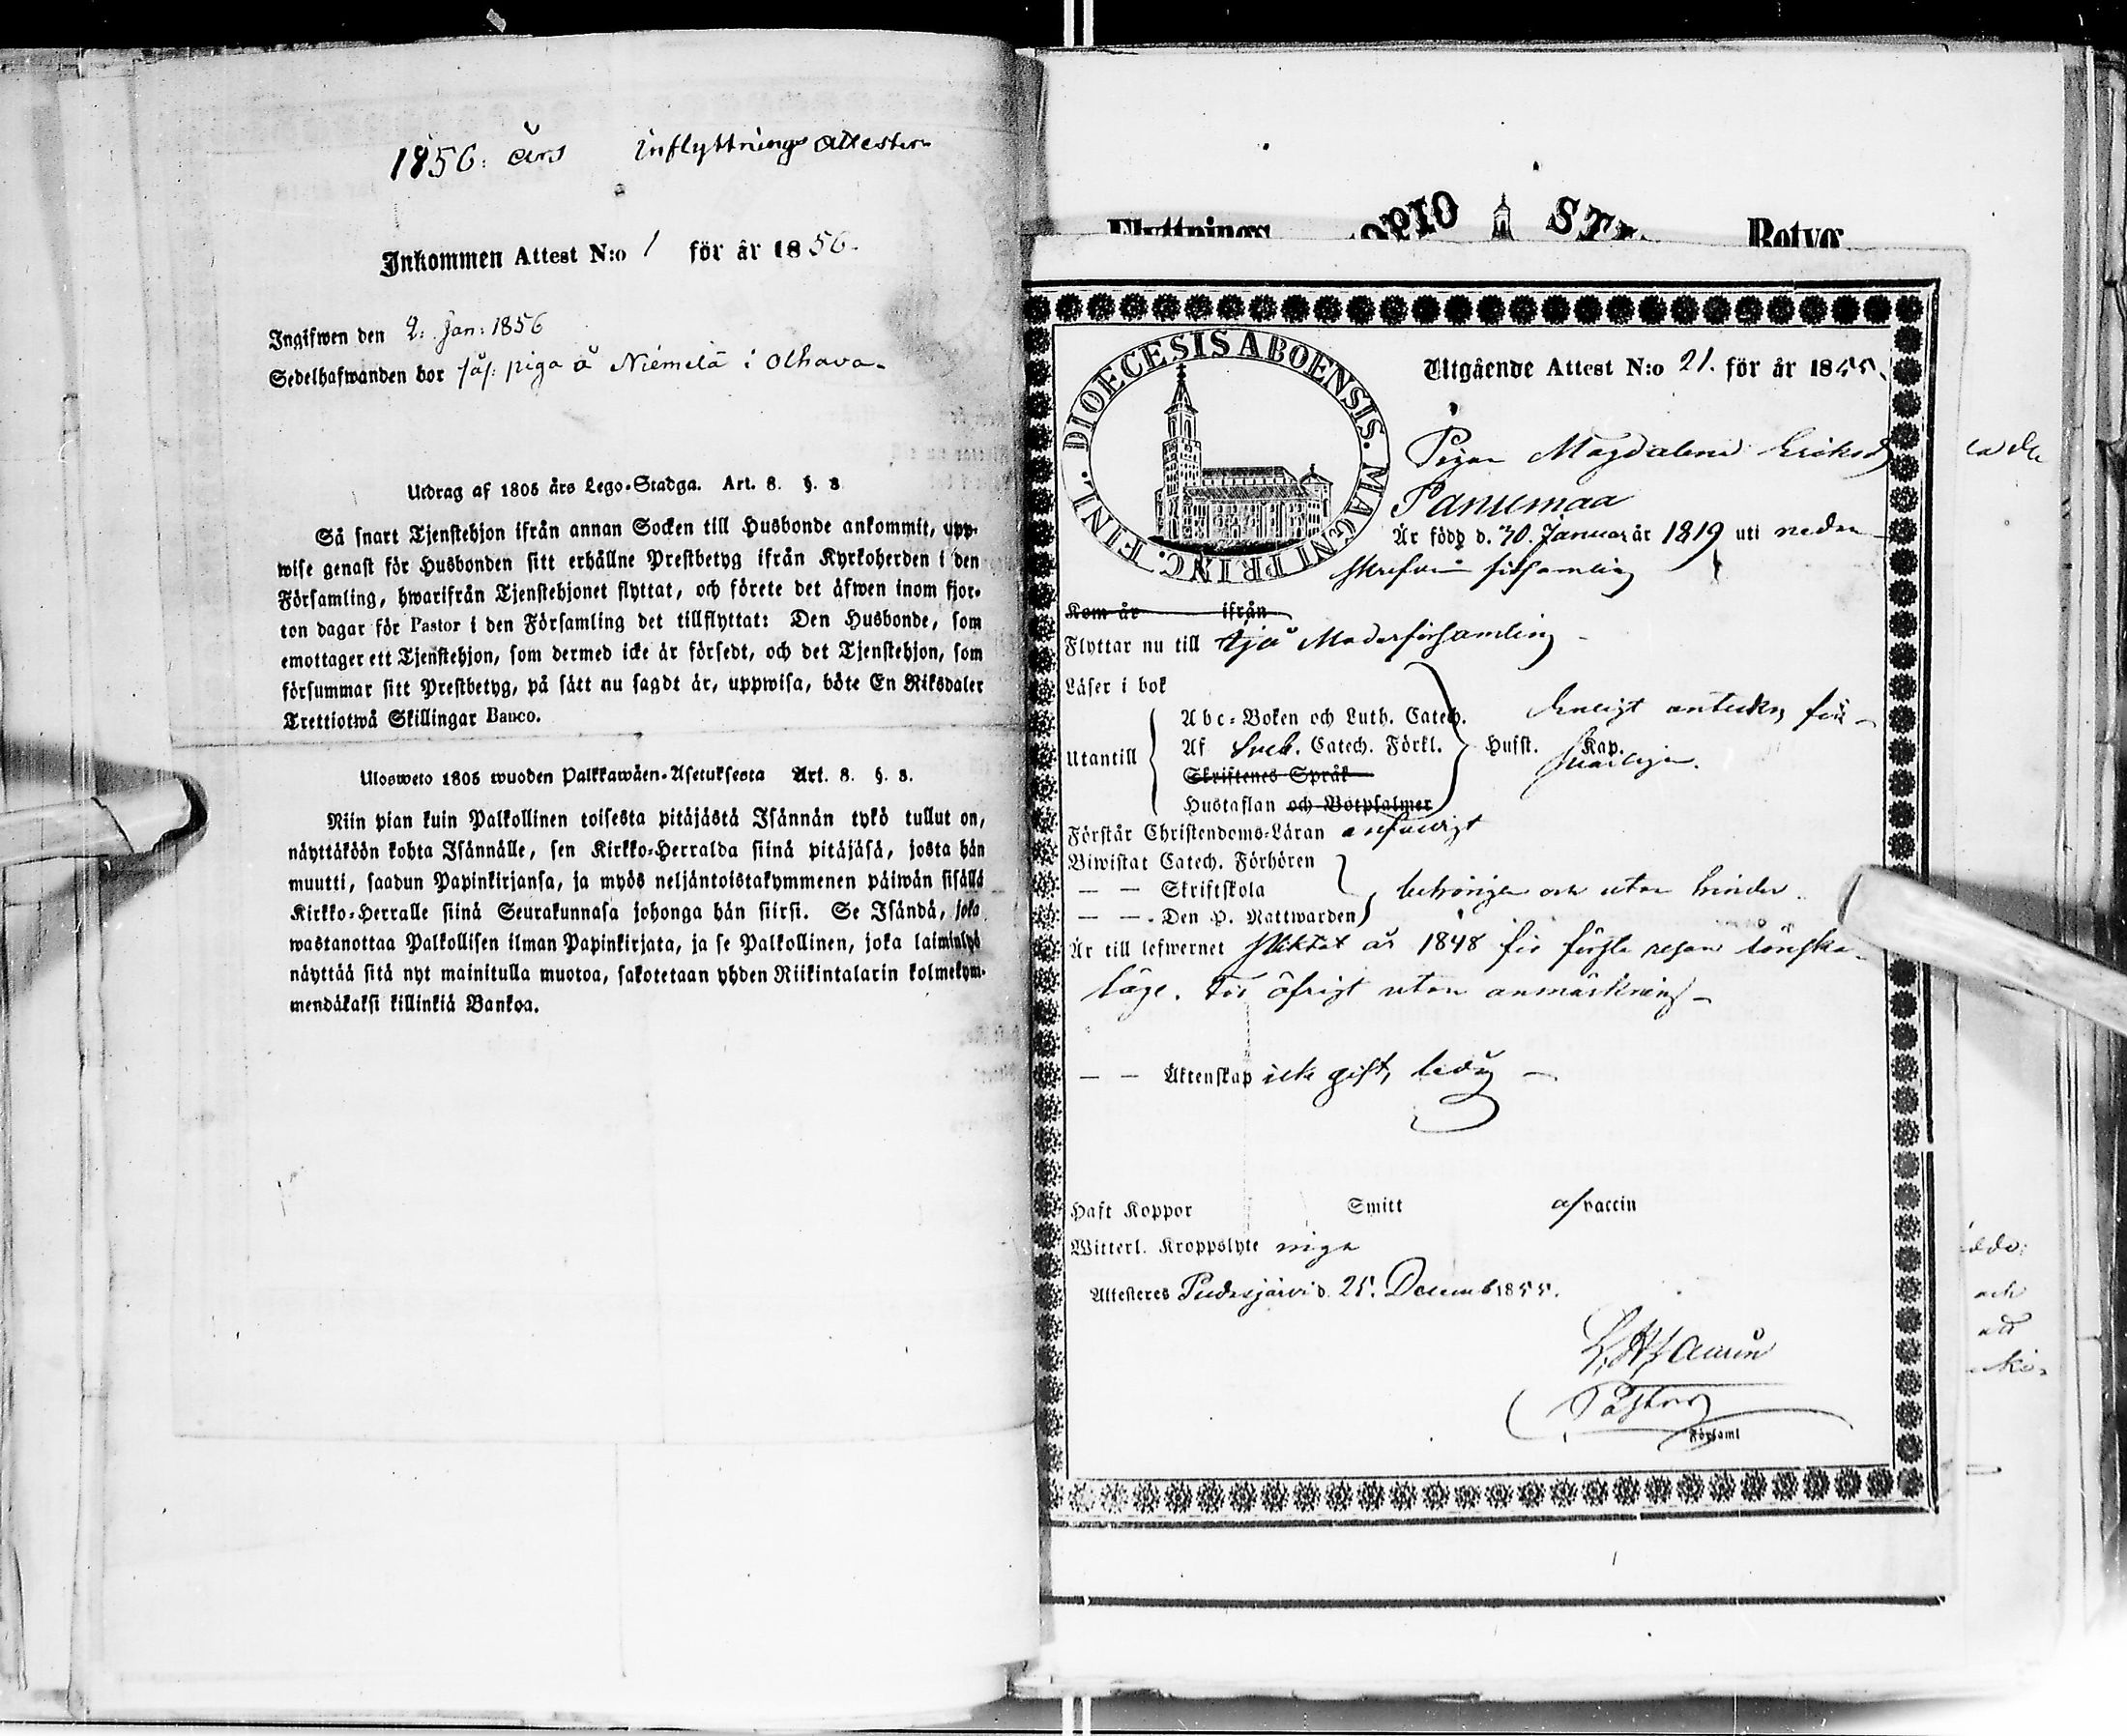 1856. års inflyttnings attester
Inkommen Attest N:o 1 för år 1856.
Ingifwen den 2. Jan: 1856
Sedelhafwanden bor såf. piga å Niemelä i Olhava.
Utdrag af 1805 års Lego-Stadga. Art. 8. §. 8
Så snart Tjenstehjon ifrån annan Socken till Husbonde ankommit, upp-
wise genast för Husbonden sitt erhållne Prestbetyg ifrån Kyrkoherden i den
Församling, hwarifrån Tjenstehjonet flyttat, och förete det äfwen inom fjor-
ton dagar för Pastor i den Församling det tillflyttat: Den Husbonde, som
emottager ett Tjenstehjon, som dermed icke är försedt, och det Tjenstehjon, som
försummar sitt Prestbetyg, på sätt nu sagdt är, uppwisa, böte En Riksdaler
Trettiotwå Skillingar Banco.
Ulosweto 1805 wuoden Palkkawäen-Asetuksesta Art. 8. §. 8.
Niin pian kuin Palkollinen toisesta pitäjästä Isännän tykö tullut on,
näyttäköön kohta Isännälle, sen Kirkko-Herralda siinä pitäjäsä, josta hän
muutti, saadun Papinkirjansa, ja myös neljäntoistakymmenen päiwän sisällä
Kirkko-Herralle siinä Seurakunnasa johonga hän siirsi. Se Isändä, joka
wastanottaa Palkollisen ilman Papinkirjata, ja se Palkollinen, joka laiminlyö
näyttää sitä nyt mainitulla muotoa, sakotetaan yhden Riikintalarin kolmekym-
mendäkaksi killinkiä Bankoa.
DIOECESIS ABOENSIS. MAGNI PRINC. FINL.
Utgående Attest N:o 21. för år 1855.
Pigan Magdalena Eriksd
Panumaa
Är född d. 30. Januar år 1819 uti neden
skrefne församling
Kom år ifrån
Flyttar nu till Ijå Moderförsamling
Läser i bok
Abc-Boken och Luth. Catech.
Enligt anteckn för-
Utantill Af Sveb. Catech. Förkl. Husst. Kap.
Skriftenes Språk
Hustaflan och Botpsalmer
Förstår Christendoms-Läran
Biwistat Catech. Förhören
— — Skriftskola behörigen och utan hinder.
— — Den H. Nattwarden
Är till lefwernet pliktat år 1848 för första resan lönska-
läge. För öfrigt utan anmärkning
— — Äktenskap icke gift, ledig —
Haft Koppor Smitt af vaccin
Witterl. Kroppslyte inga
Attesteres Pudasjärvi d. 25. Decemb 1855.
Pastor
Församl